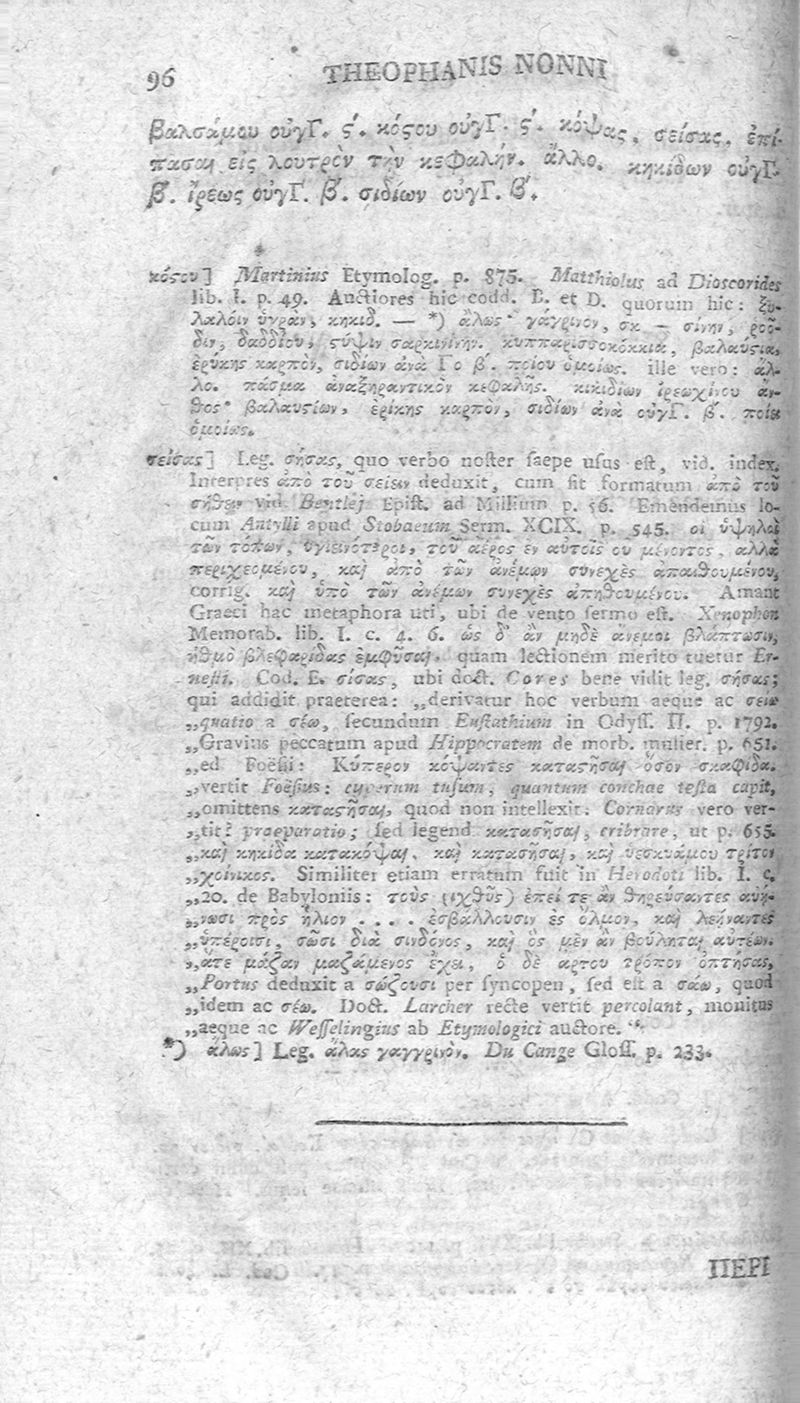 96 THEOPHANIS NONNI
βαλσάμου οὐγΓ. ϛ΄. κόϛου οὐγΓ. ϛ΄. κόψας, σείσας, ἐπί-
πασαι εἰς λουτρὸν τὴν κεφαλήν. ἄλλο. κηκίδων οὐγΓ.
β΄. ἴρεως οὐγΓ. β΄. σιδίων οὐγΓ. β΄.
κόϛου] Martinius Etymolog. p. 875. Matthiolus ad Dioscorides
lib. I. p. 49. Auctiores hic codd. E. et D. quorum hic: ξυ-
λαλόιν ὑγρὰν, κηκιδ. — *) ἅλως γάγρινον, σκ — σινην, ῥοῦ-
διν, δαδδίου, ϛύψιν σαρκινίνην. κυππαρισσοκόκκια, βαλαυϛια,
ἐρύκης καρπὸν, σιδίων ἀνὰ Γο β΄. ποίου ὁμοίως. ille vero: ἄλ-
λο. πάσμα ἀναξηραντικὸν κεφαλῆς. κικιδίων ἰρεωχίνου ἄν-
θος βαλαυϛίων, ἐρίκης καρπὸν, σιδίων ἀνὰ οὐγΓ. β΄. ποίει
ὁμοίως.
σείσας] Leg. σήσας, quo verbo noster saepe usus est, vid. index.
Interpres ἀπὸ τοῦ σείειν deduxit, cum sit formatum ἀπὸ τοῦ
σήθειν vid. Bentlej Epist. ad Millium p. 56. Emendemus lo-
cum Antylli apud Stobaeum Serm. XCIX. p. 545. οἱ ὑψηλοὶ
τῶν τόπων, ὑγιεινότεροι, τοῦ αέρος ἐν αὐτοῖς ου μένοντος, αλλὰ
περιχεομένου, καὶ ἀπὸ τῶν ἀνέμων συνεχὲς ἀπαιθουμένου,
corrig. καὶ ὑπὸ τῶν ἀνέμων συνεχὲς ἀπηθουμένου. Amant
Graeci hac metaphora uti, ubi de vento sermo est. Xenophon
Memorab. lib. I. c. 4. 6. ὡς δ' ἂν μηδὲ ἄνεμοι βλάπτωσιν,
ἠθμὸ βλεφαρίδας ἐμφῦσαι. quam lectionem merito tuetur Er-
nesti. Cod. E. σίσας, ubi doct. Cores bene vidit leg. σήσας;
qui addidit praeterea: „derivatur hoc verbum aeque ac σείω
„quatio a σέω, secundum Eustathium in Odyss. Π. p. 1792.
„Gravius peccatum apud Hippocratem de morb. mulier. p. 651.
„ed Foësii: Κύπερον κόψαντες καταϛῆσαι ὅσον σκαφίδα.
„vertit Foësius: cyperum tusum, quantum conchae testa capit,
„omittens καταϛῆσαι, quod non intellexit. Cornarus vero ver-
„tit: praeparatio; sed legend. κατασῆσαι, cribrare, ut p. 655.
„καὶ κηκίδα κατακόψαι, καὶ κατασῆσαι, καὶ ὑεσκυάμου τρίτον
„χοίνικος. Similiter etiam erratum fuit in Herodoti lib. I. c.
„20. de Babyloniis: τοὺς (ιχθῦς) ἐπεί τε ἂν θηρεύσαντες αυή-
„νωσι πρὸς ἥλιον .... ἐσβάλλουσιν ἐς ὅλμον, καὶ λεήναντες
„ὑπέροισι, σῶσι διὰ σινδόνος, καὶ ὃς μὲν ἂν βούληται αυτέων.
„ἅτε μάζαν μαζάμενος ἔχει, ὁ δὲ αρτου τρόπον ὀπτήσας,
„Portus deduxit a σώζουσι per syncopen, sed est a σάω, quod
„idem ac σέω. Doct. Larcher recte vertit percolant, monitus
„aeque ac Wesselingius ab Etymologici auctore.“
*) ἅλως] Leg. ἅλας γαγγρινὸν. Du Cange Gloss. p. 233.
ΠΕΡΙ